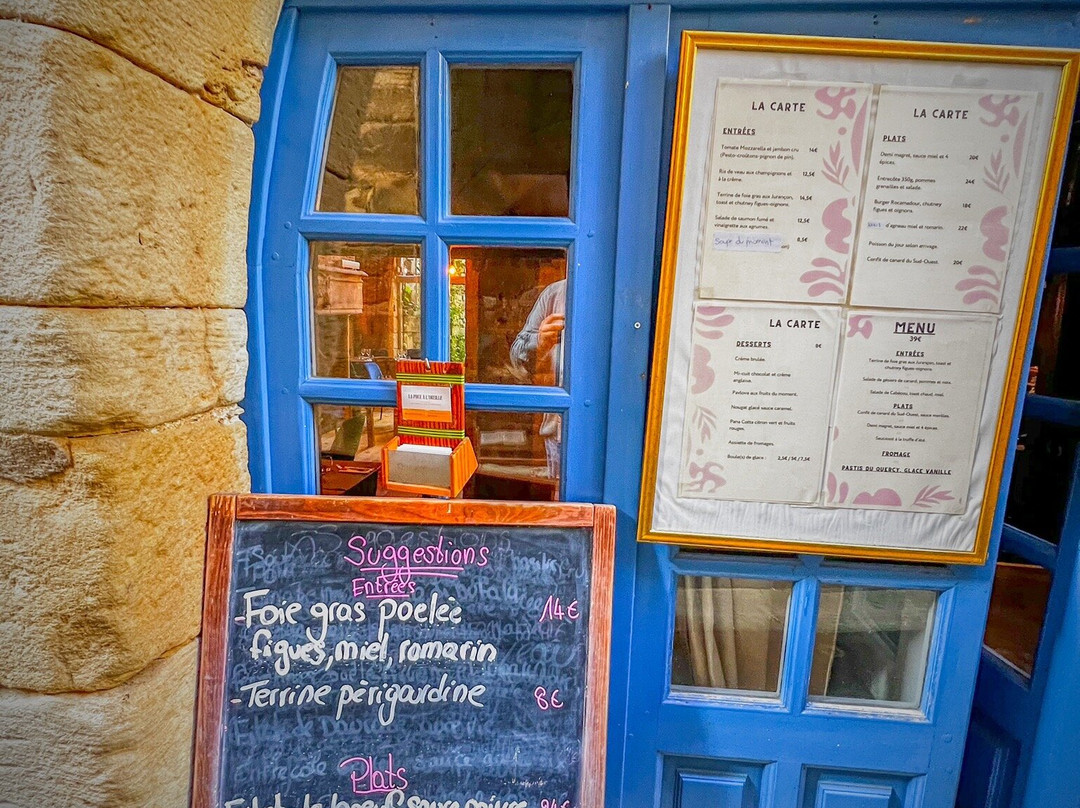 LA CARTE
ENTRÉES
Tomate Mozzarella et jambon cru 16€
(Pesto-croûtons-pignon de pin).
Ris de veau aux champignons et 12,5€
à la crème.
Terrine de foie gras aux Jurançon, 14,5€
toast et chutney figues-oignons.
Salade de saumon fumé et 12,5€
vinaigrette aux agrumes.
Soupe du moment 8,5€
LA CARTE
PLATS
Demi magret, sauce miel et 4 20€
épices.
Entrecôte 350g, pommes 24€
grenailles et salade.
Burger Rocamadour, chutney 18€
figues et oignons.
d'agneau miel et romarin. 22€
Poisson du jour selon arrivage.
Confit de canard du Sud-Ouest. 20€
LA CARTE
DESSERTS 8€
Crème brulée.
Mi-cuit chocolat et crème
anglaise.
Pavlova aux fruits du moment.
Nougat glacé sauce caramel.
Pana Cotta citron vert et fruits
rouges.
Assiette de fromages.
Boule(s) de glace : 2,5€/5€/7,5€
MENU
39€
ENTRÉES
Terrine de foie gras aux Jurançon, toast et
chutney figues-oignons.
Salade de gésiers de canard, pommes et noix.
Salade de Cabécou, toast chaud, miel.
PLATS
Confit de canard du Sud-Ouest, sauce
Demi magret, sauce miel et 4 épices.
Saucisse à la truffe d'été.
FROMAGE
PASTIS DU QUERCY, GLACE VANILLE
LA PUCE À L'OREILLE
Suggestions
Entrées
-Foie gras poelée 14€
figues, miel, romarin
-Terrine périgardine 8€
Plats